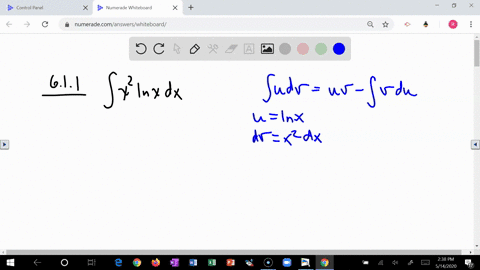 Control Panel
Numerade Whiteboard
numerade.com/answers/whiteboard/
6.1.1 ∫x² ln x dx
∫u dv = uv − ∫v du
u = ln x
dv = x² dx
2:38 PM
5/14/2020